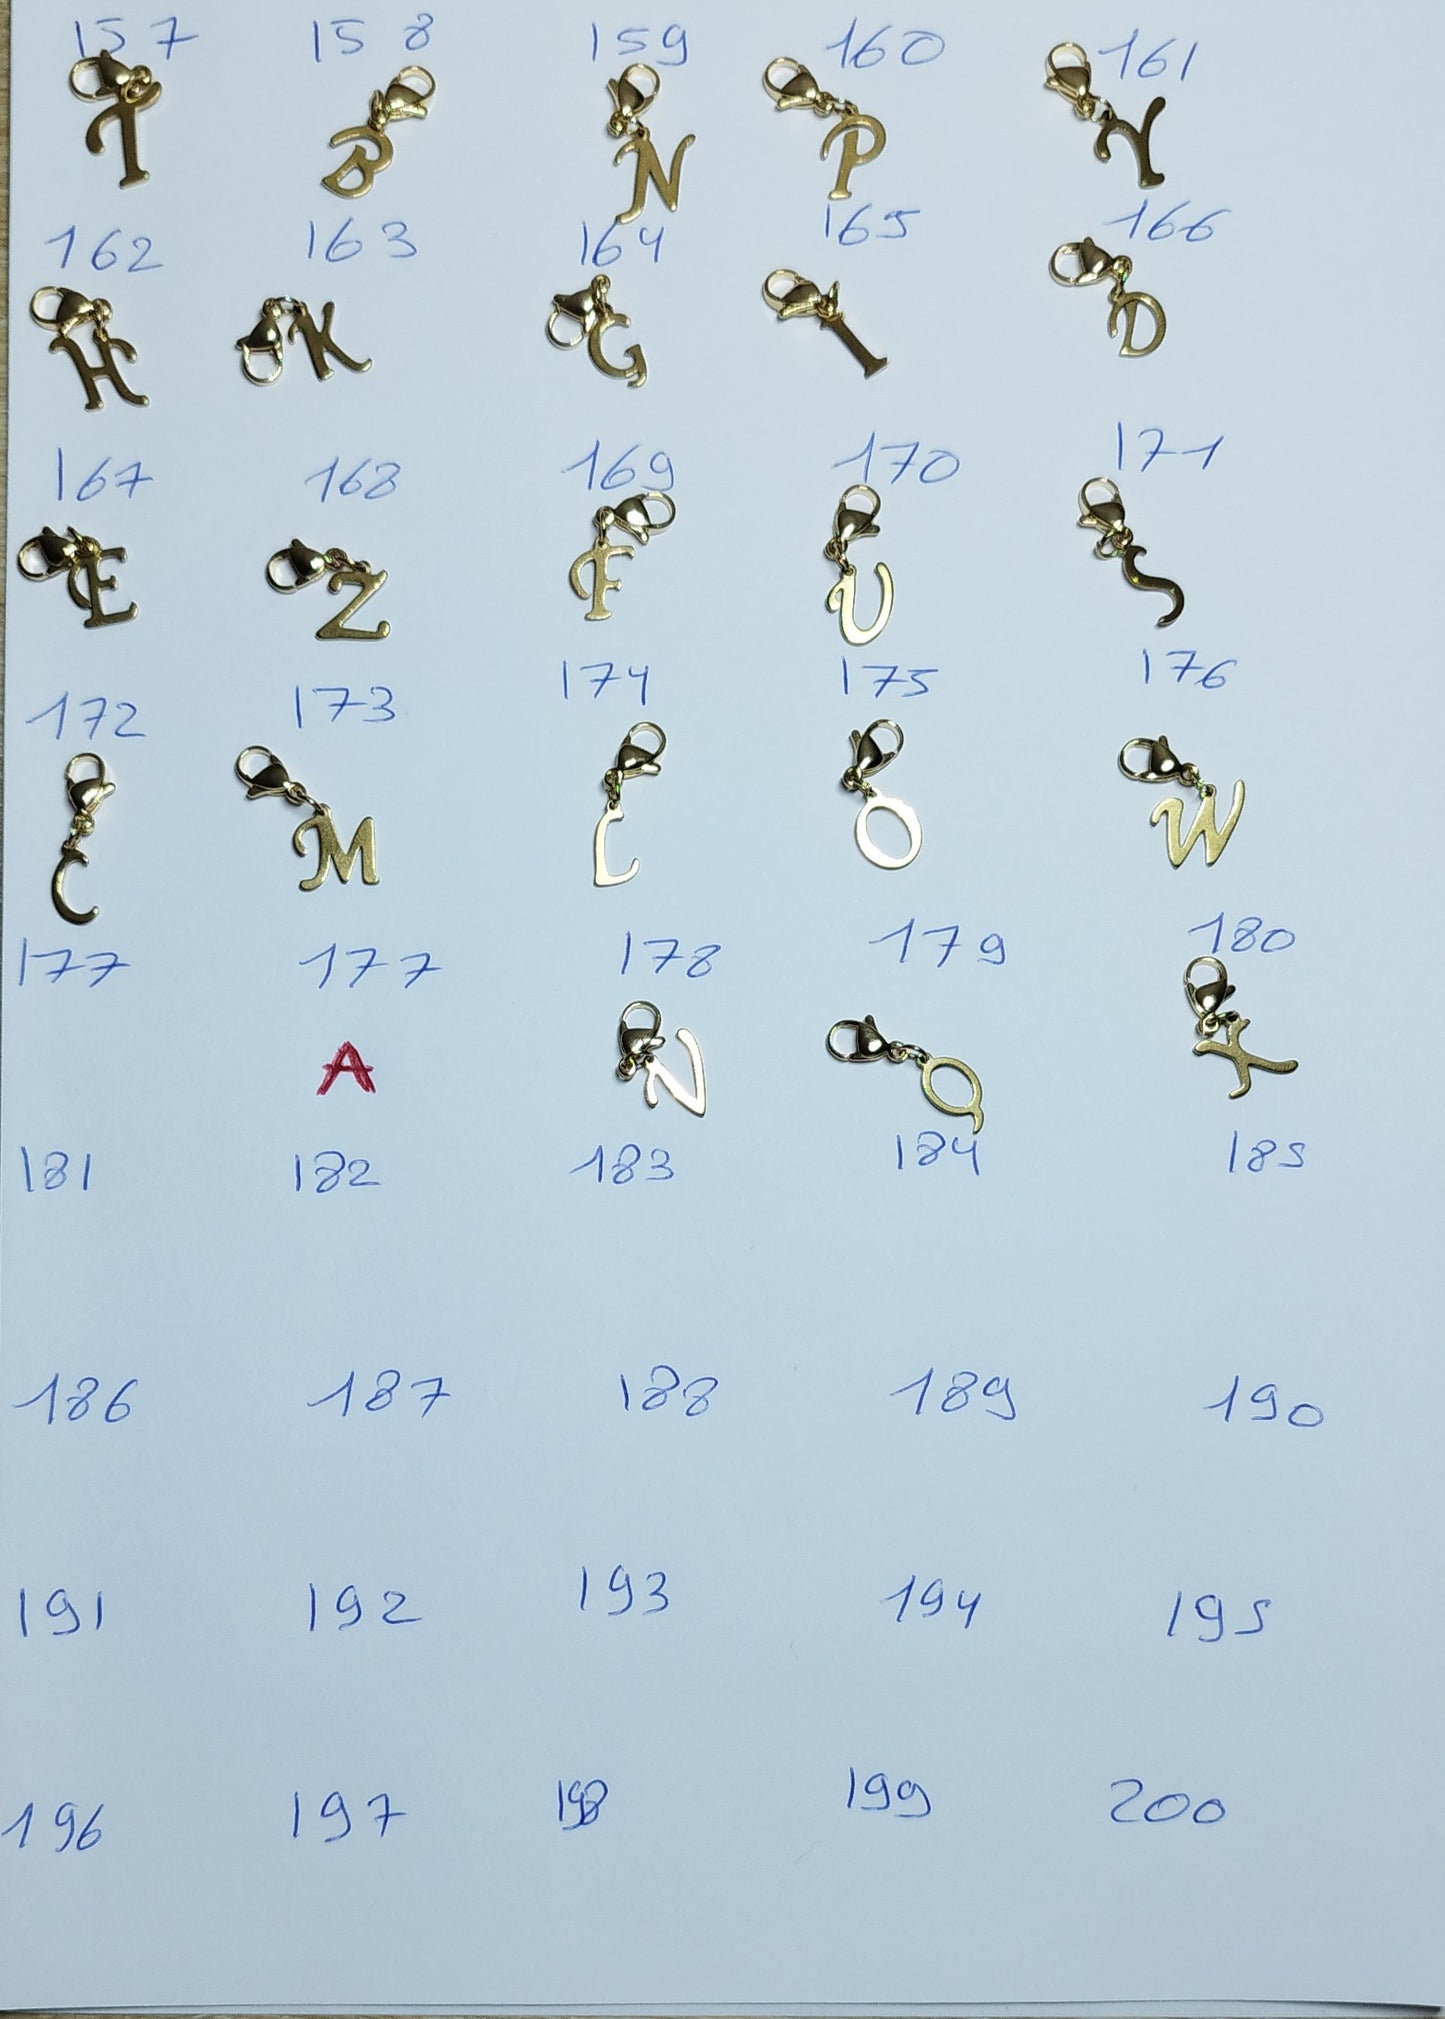 157 158 159 160 161
T B N P Y
162 163 164 165 166
H K G I D
167 168 169 170 171
E Z F U S
172 173 174 175 176
C M L O W
177 177 178 179 180
A V Q X
181 182 183 184 185
186 187 188 189 190
191 192 193 194 195
196 197 198 199 200